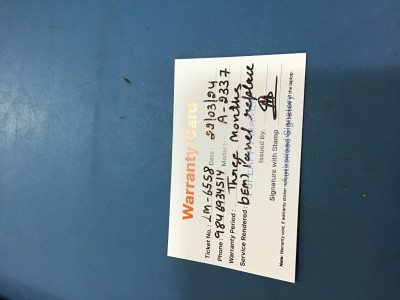 Warranty Card
Ticket No.: LM-6558 Date: 22/03/24
Phone: 9846934514 Model: A-2337
Warranty Period: Three Months
Service Rendered: (OEM) Panel replace
Issued By.
Signature with Stamp
Note: Warranty void, if warranty sticker of the laptop.